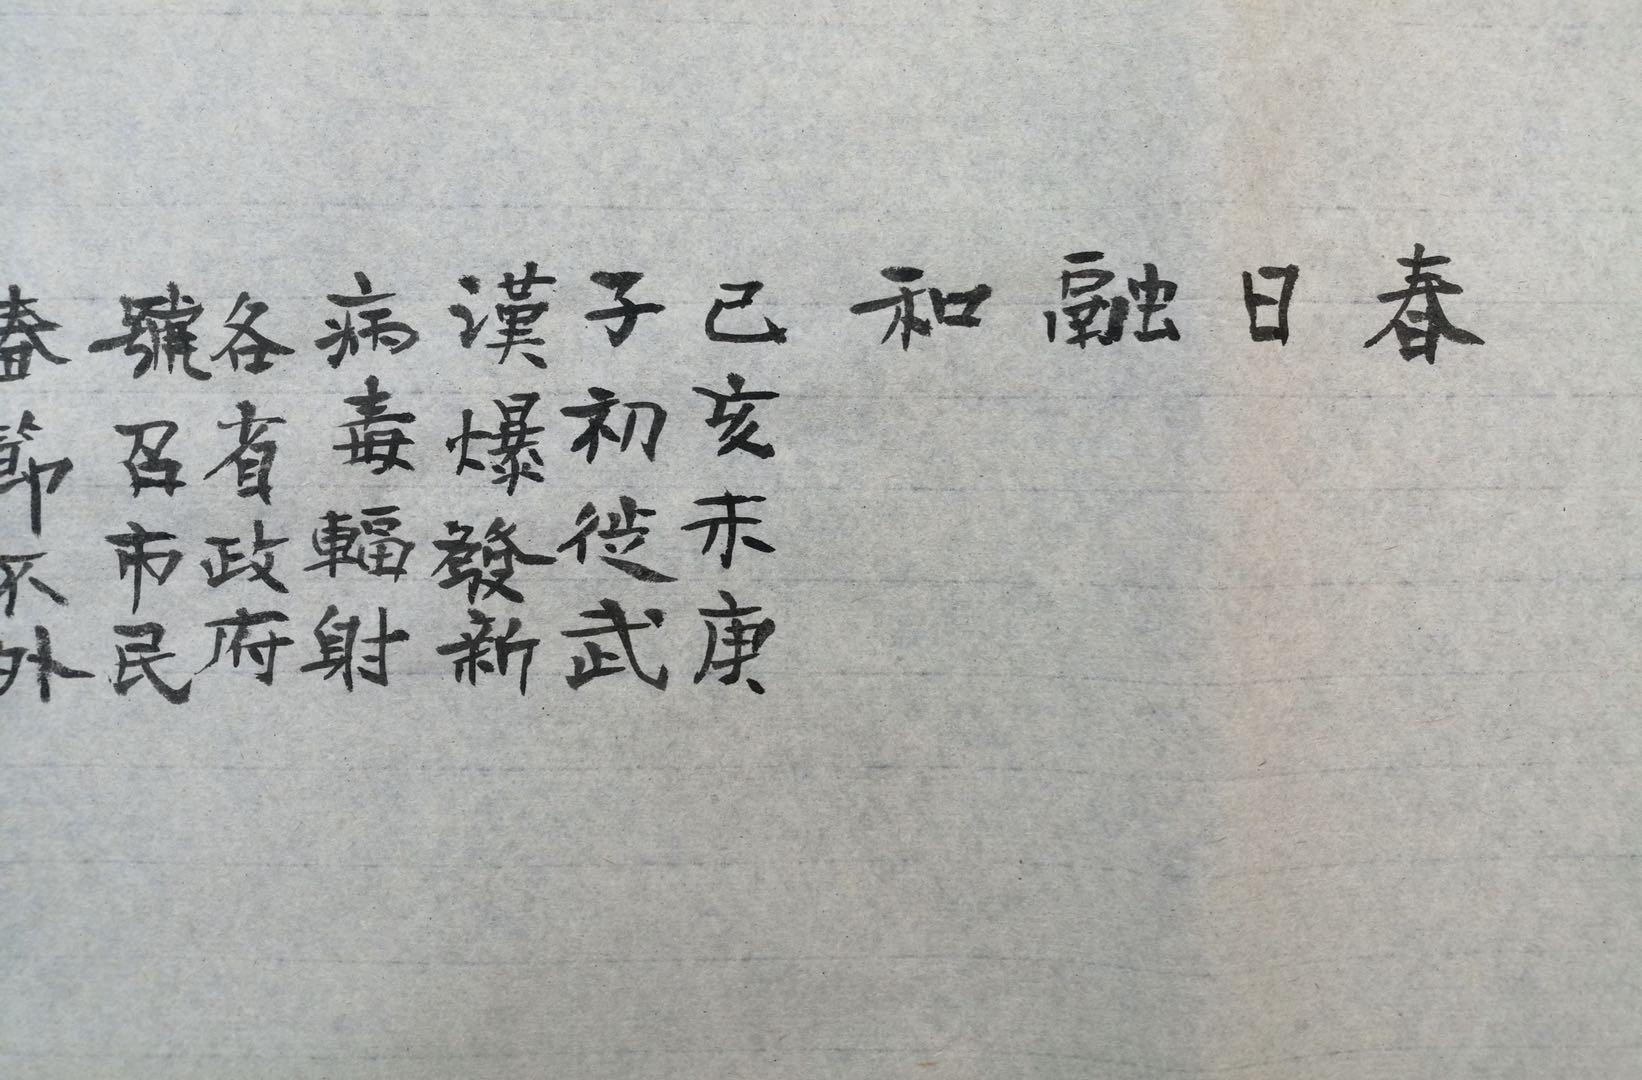 春日融和
己亥末庚
子初從武
漢爆發新
病毒輻射
各省政府
號召市民
春節不外